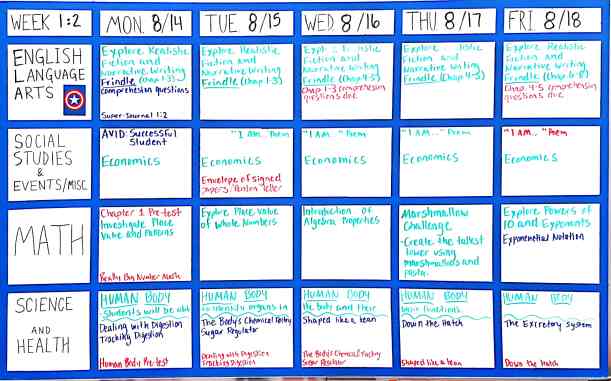 WEEK 1:2
MON 8/14
TUE 8/15
WED 8/16
THU 8/17
FRI 8/18
ENGLISH
LANGUAGE
ARTS
Explore Realistic
Fiction and
Narrative Writing
Frindle (Chap 1-3)
comprehension questions
Super-Journal 1:2
Explore Realistic
Fiction and
Narrative Writing
Frindle (Chap 1-3)
Fiction and
Narrative Writing
Frindle (Chap 4-5)
Chap 1-3 comprehension
questions due
Fiction and
Narrative Writing
Frindle (Chap 4-5)
Explore Realistic
Fiction and
Narrative Writing
Frindle
Chap 4-5 comprehension
questions due
SOCIAL
STUDIES
&
EVENTS/MISC.
AVID: Successful
Student
Economics
"I Am.." Poem
Economics
Envelope of signed
papers/Parent letter
"I AM.." Poem
Economics
"I AM.." Poem
Economics
"I AM.." Poem
Economics
MATH
Chapter 1 Pre-test
Investigate Place
Value and Patterns
Really Big Number Math
Explore Place Value
of Whole Numbers
Introduction of
Algebra Properties
Marshmallow
Challenge
-Create the tallest
tower using
marshmallows and
pasta.
Explore Powers of
10 and Exponents
Exponential Notation
SCIENCE
AND
HEALTH
HUMAN BODY
Students will be able
Dealing with Digestion
Tracking Digestion
Human Body Pre-test
HUMAN BODY
to identify organs in
The Body's Chemical Factory
Sugar Regulator
Dealing with Digestion
Tracking Digestion
HUMAN BODY
the body and their
Shaped like a bean
The Body's Chemical Factory
Sugar Regulator
HUMAN BODY
functions
Down the Hatch
Shaped like a bean
HUMAN BODY
The Excretory System
Down the Hatch